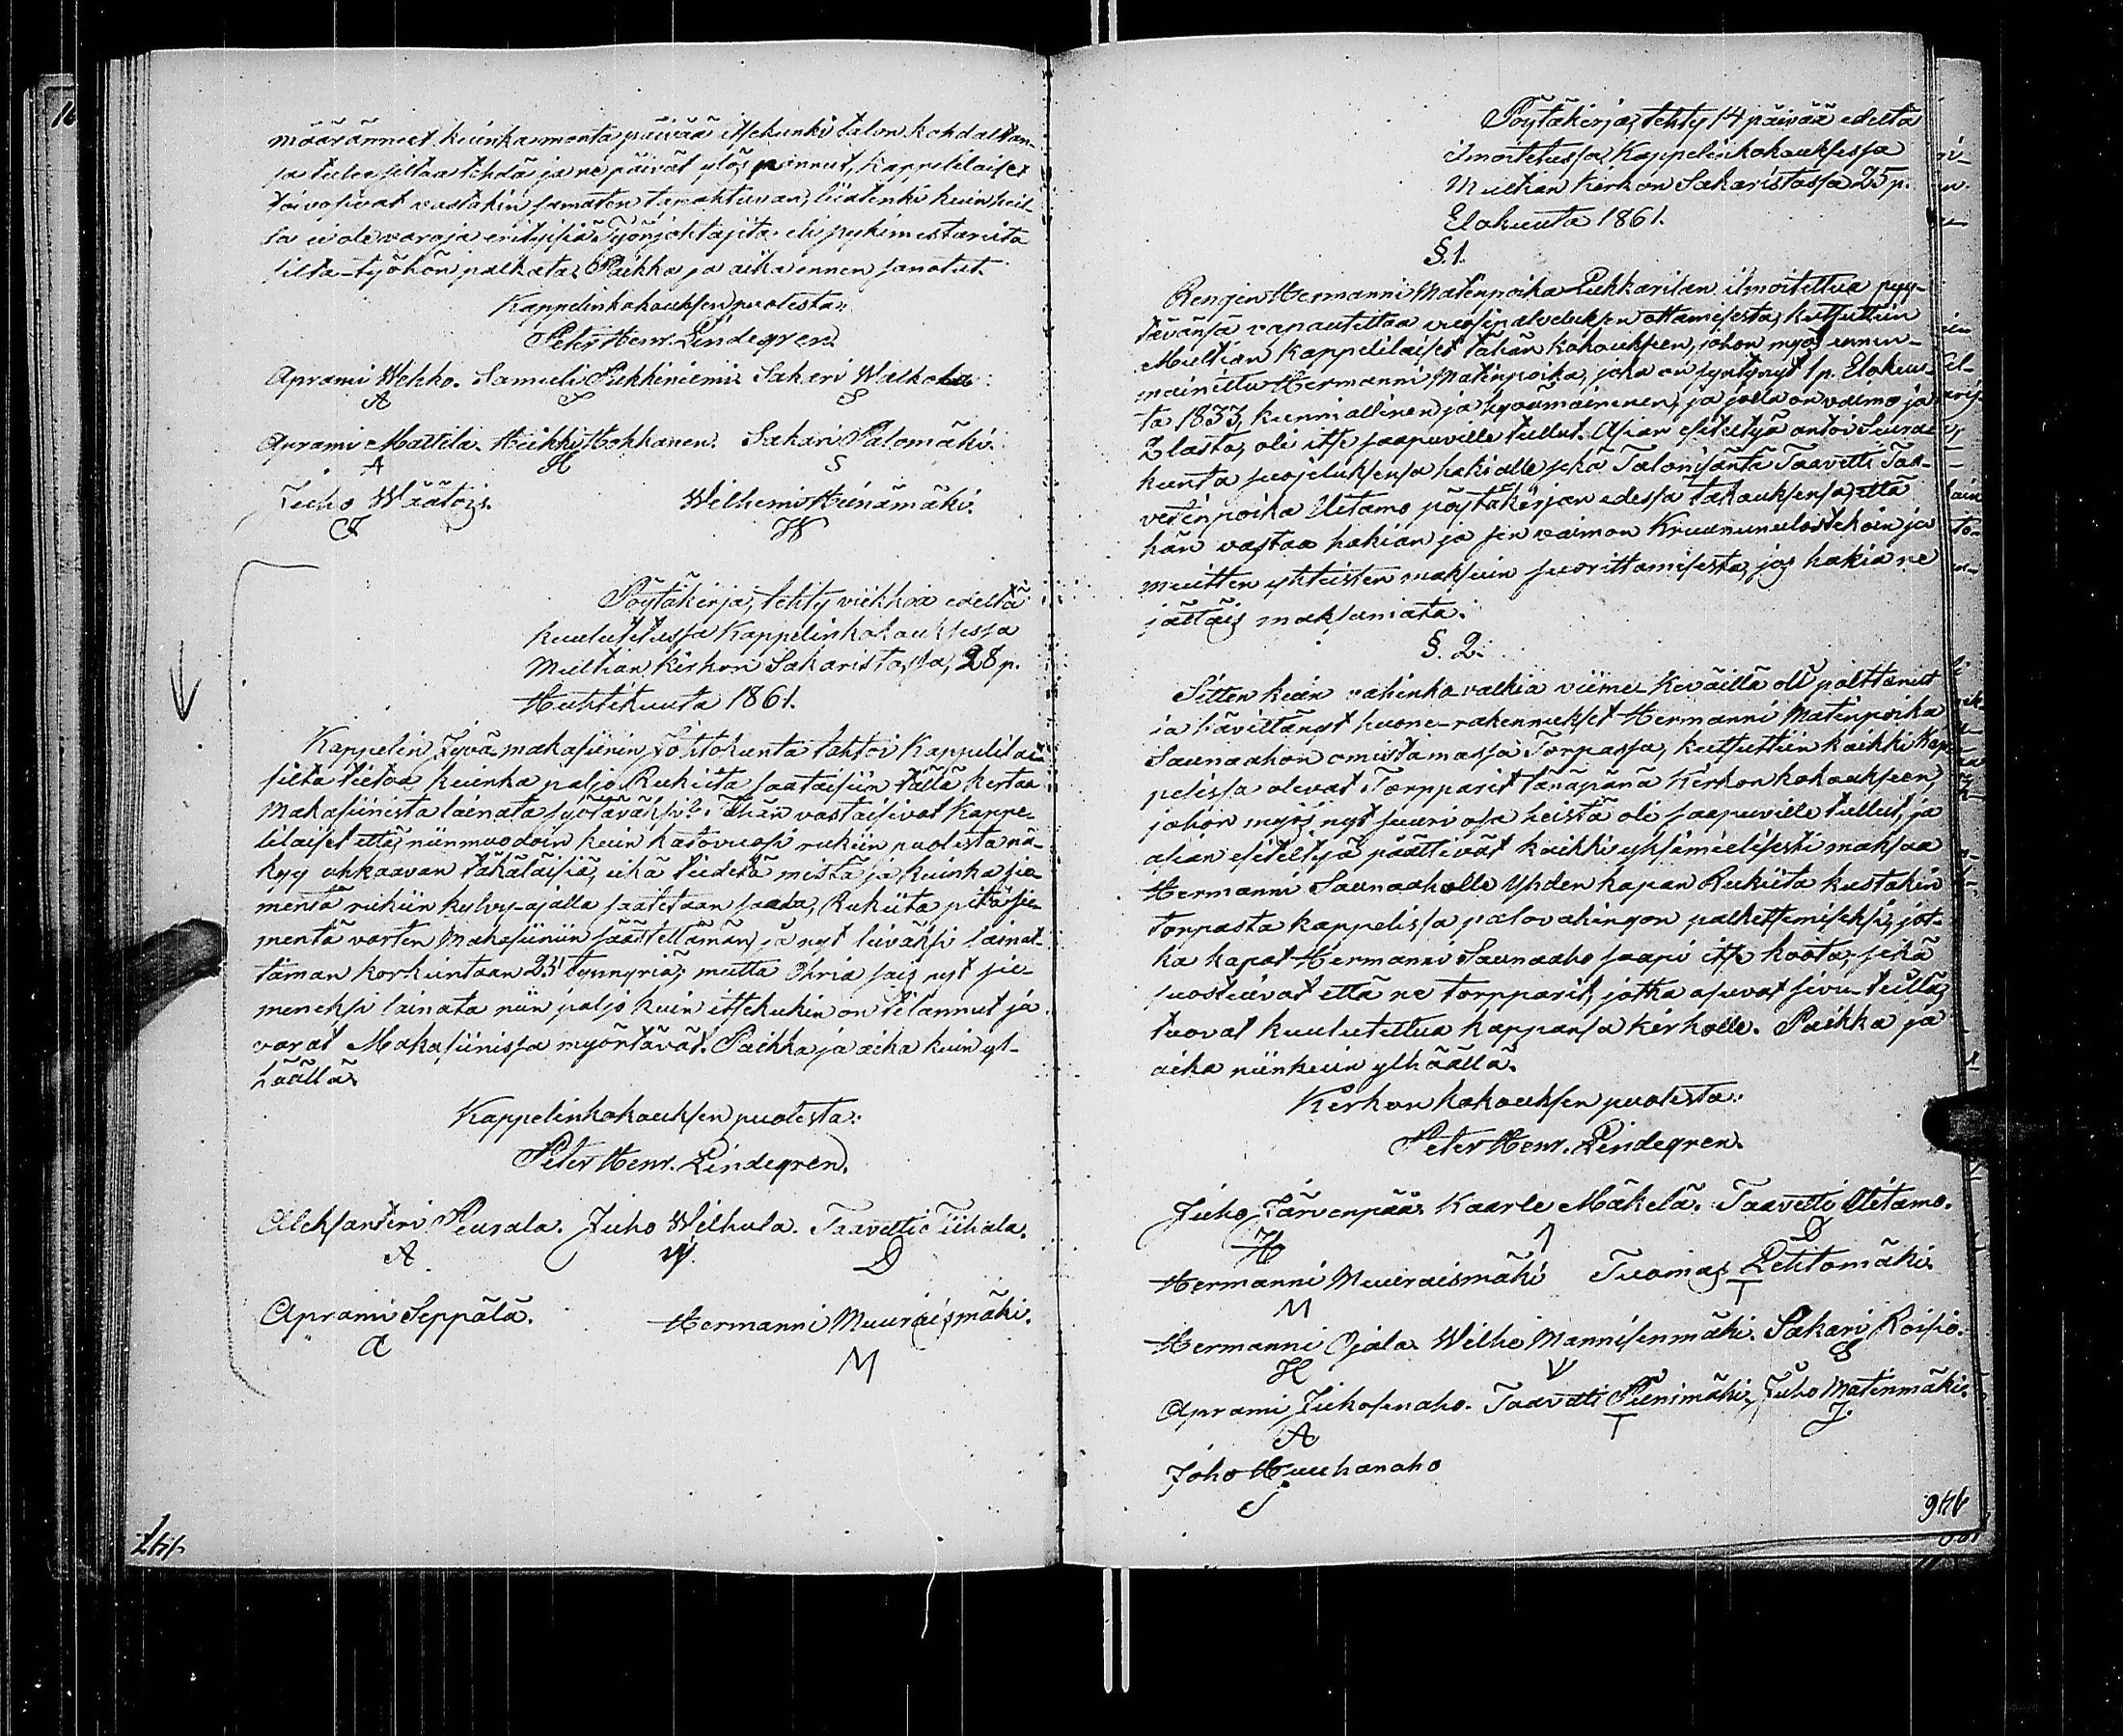 määränneet kuinka monta päivää itsekunki talon kohdaltan-
sa tulee siltaa tehdä ja ne päivät ylös pannut, Kappelilaiset
toivosivat vastakin samaten tapahtuvan, liiatenki kuin heil-
lä ei ole varoja erityisiä Työnjohtajita eli pykimestarita
silta-työhön palkata. Paikka ja aika ennen sanotut.
Kappelinkokouksen puolesta:
Peter Henr. Lindegren.
Aprami Wehko. Samuli Pukkiniemi. Sakari Walkola
A S S
Aprami Mattila. Heikki Hokkanen. Sakari Palomäki.
A H S
Juho Wäätöis. Wilhemi Heinämäki.
J W
Pöytäkirja, tehty viikkoa edeltä
kuulutetussa Kappelinkokouksessa
Multian kirkon Sakaristossa, 28 p.
Huhtikuuta 1861.
Kappelin Jyvä-makasiinin Johtokunta tahtoi Kappelilai-
silta tietoa, kuinka paljo Rukiita saataisiin tällä kertaa
Makasiinista lainata syötäväksi? Tähän vastaisivat Kappe-
lilaiset että, niinmuodoin kuin katovuosi rukiin puolesta nä-
kyy uhkaavan täkäläisiä, eikä tiedetä mistä ja kuinka sie-
mentä rukiin kylvy-ajalla saatetaan saada, Rukiita pitä sie-
mentä varten Makasiiniin säästettämän, ja nyt leiväksi lainat-
taman korkiintaan 25 tynnyriä; mutta Ohria sais nyt sie-
meneksi lainata niin paljo kuin itsekukin on tilannut ja
varat Makasiinissa myöntävät. Paikka ja aika kuin yl-
häällä.
Kappelinkokouksen puolesta:
Peter Henr. Lindegren.
Aleksanteri Peurala. Juho Wilhula. Taavetti Tiihala.
A W. D
Aprami Seppälä. Hermanni Muuraismäki.
A M
447
Pöytäkirja, tehty 14 päivää edeltä
ilmoitetussa Kappelinkokouksessa
Multian Kirkon Sakaristossa 25 p.
Elokuuta 1861.
§. 1.
Rengin Hermanni Matinpoika Pukkarilan ilmoitettua pyy-
tävänsä vapautettaa vuosipalveluksen ottamisesta, kutsuttiin
Multian Kappelilaiset tähän kokoukseen, johon myös ennen-
mainittu Hermanni Matinpoika, joka on syntynyt 1 p. Elokuu-
ta 1833, kunniallinen ja hyvämaineinen, ja jolla on vaimo ja
2 lasta, oli itse saapuville tullut. Asian esiteltyä antoi Seura-
kunta suojeluksensa hakialle sekä Talonisäntä Taavetti Taa-
vetinpoika Uitamo pöytäkirjan edessä takauksensa, että
hän vastaa hakian ja sen vaimon Kruununulostekoin ja
muitten yhteisten maksuin suorittamisesta, jos hakia ne
jättäis maksamata.
§. 2.
Sitten kuin vahinko-valkia viime Keväillä oli polttanut
ja hävittänyt huone-rakennukset Hermanni Matinpoika
Saunaahon omistamassa Torpassa, kutsuttiin kaikki Kap-
pelissa olevat Torpparit tänäpänä Kirkonkokoukseen,
johon myös nyt suuri osa heistä oli saapuville tullut, ja
asian esiteltyä päättivät kaikki yksimielisesti maksaa
Hermanni Saunaaholle Yhden kapan Rukiita kustakin
torpasta kappelissa palovahingon palkitsemiseksi, jot-
ka kapat Hermanni Saunaaho saapi itse koota; sekä
suostuivat että ne torpparit, jotka asuvat sivu-teillä,
tuovat kuulutettua kappansa kirkolle. Paikka ja
aika niinkuin ylhäällä.
Kirkonkokouksen puolesta:
Peter Henr. Lindegren.
Juho Järvenpää. Kaarle Mäkelä. Taavetti Uitamo.
H D
Hermanni Muuraismäki Tuomas Lehtomäki.
M T
Hermanni Ojala. Wilhe Mannisenmäki. Sakari Roisio.
H W S
Aprami Jukosenaho. Taavetti Pienimäki, Juho Matinmäki.
A T J.
Joho Huuhanaho
J
446